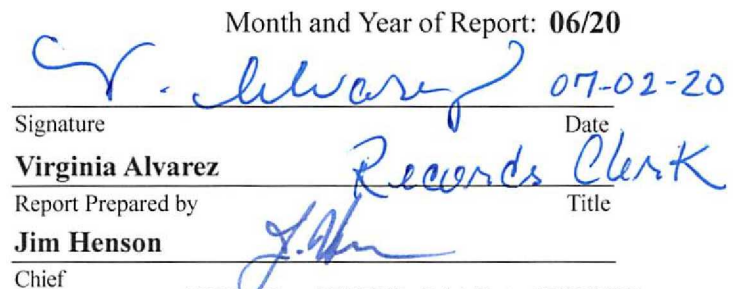 Month and Year of Report: 06/20
V. Alvarez 07-02-20
Signature Date
Virginia Alvarez Records Clerk
Report Prepared by Title
Jim Henson J. Hen
Chief